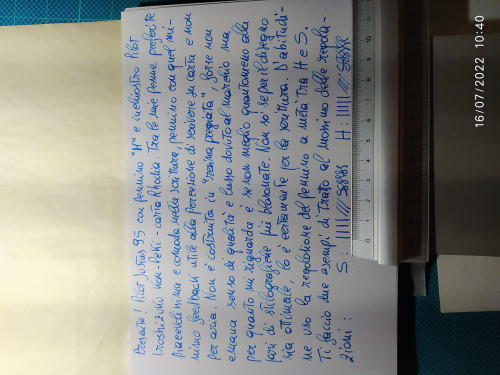 Presente! Pilot Justus 95 con pennino "H" e inchiostro Pilot
Iroshizuku kon-peki - carta Rhodia. Tra le mie penne preferite
piacevolissima e comoda nella scrittura, pennino con quel mi-
nimo feedback utile alla percezione di scrivere su carta e non
per aria. Non è costruita in "resina pregiata", forse non
emana senso di qualità e lusso dovuto al marchio ma
per quanto mi riguarda è se non meglio quantomeno alla
pari di stilografiche più blasonate. Non so se per il disegno
sia ottimale, lo è certamente per la scrittura. D'abitudi-
ne uso la regolazione del pennino a metà tra H e S.
Ti faccio due esempi di tratto al massimo delle regola-
zioni:
S: H:
16/07/2022 10:40